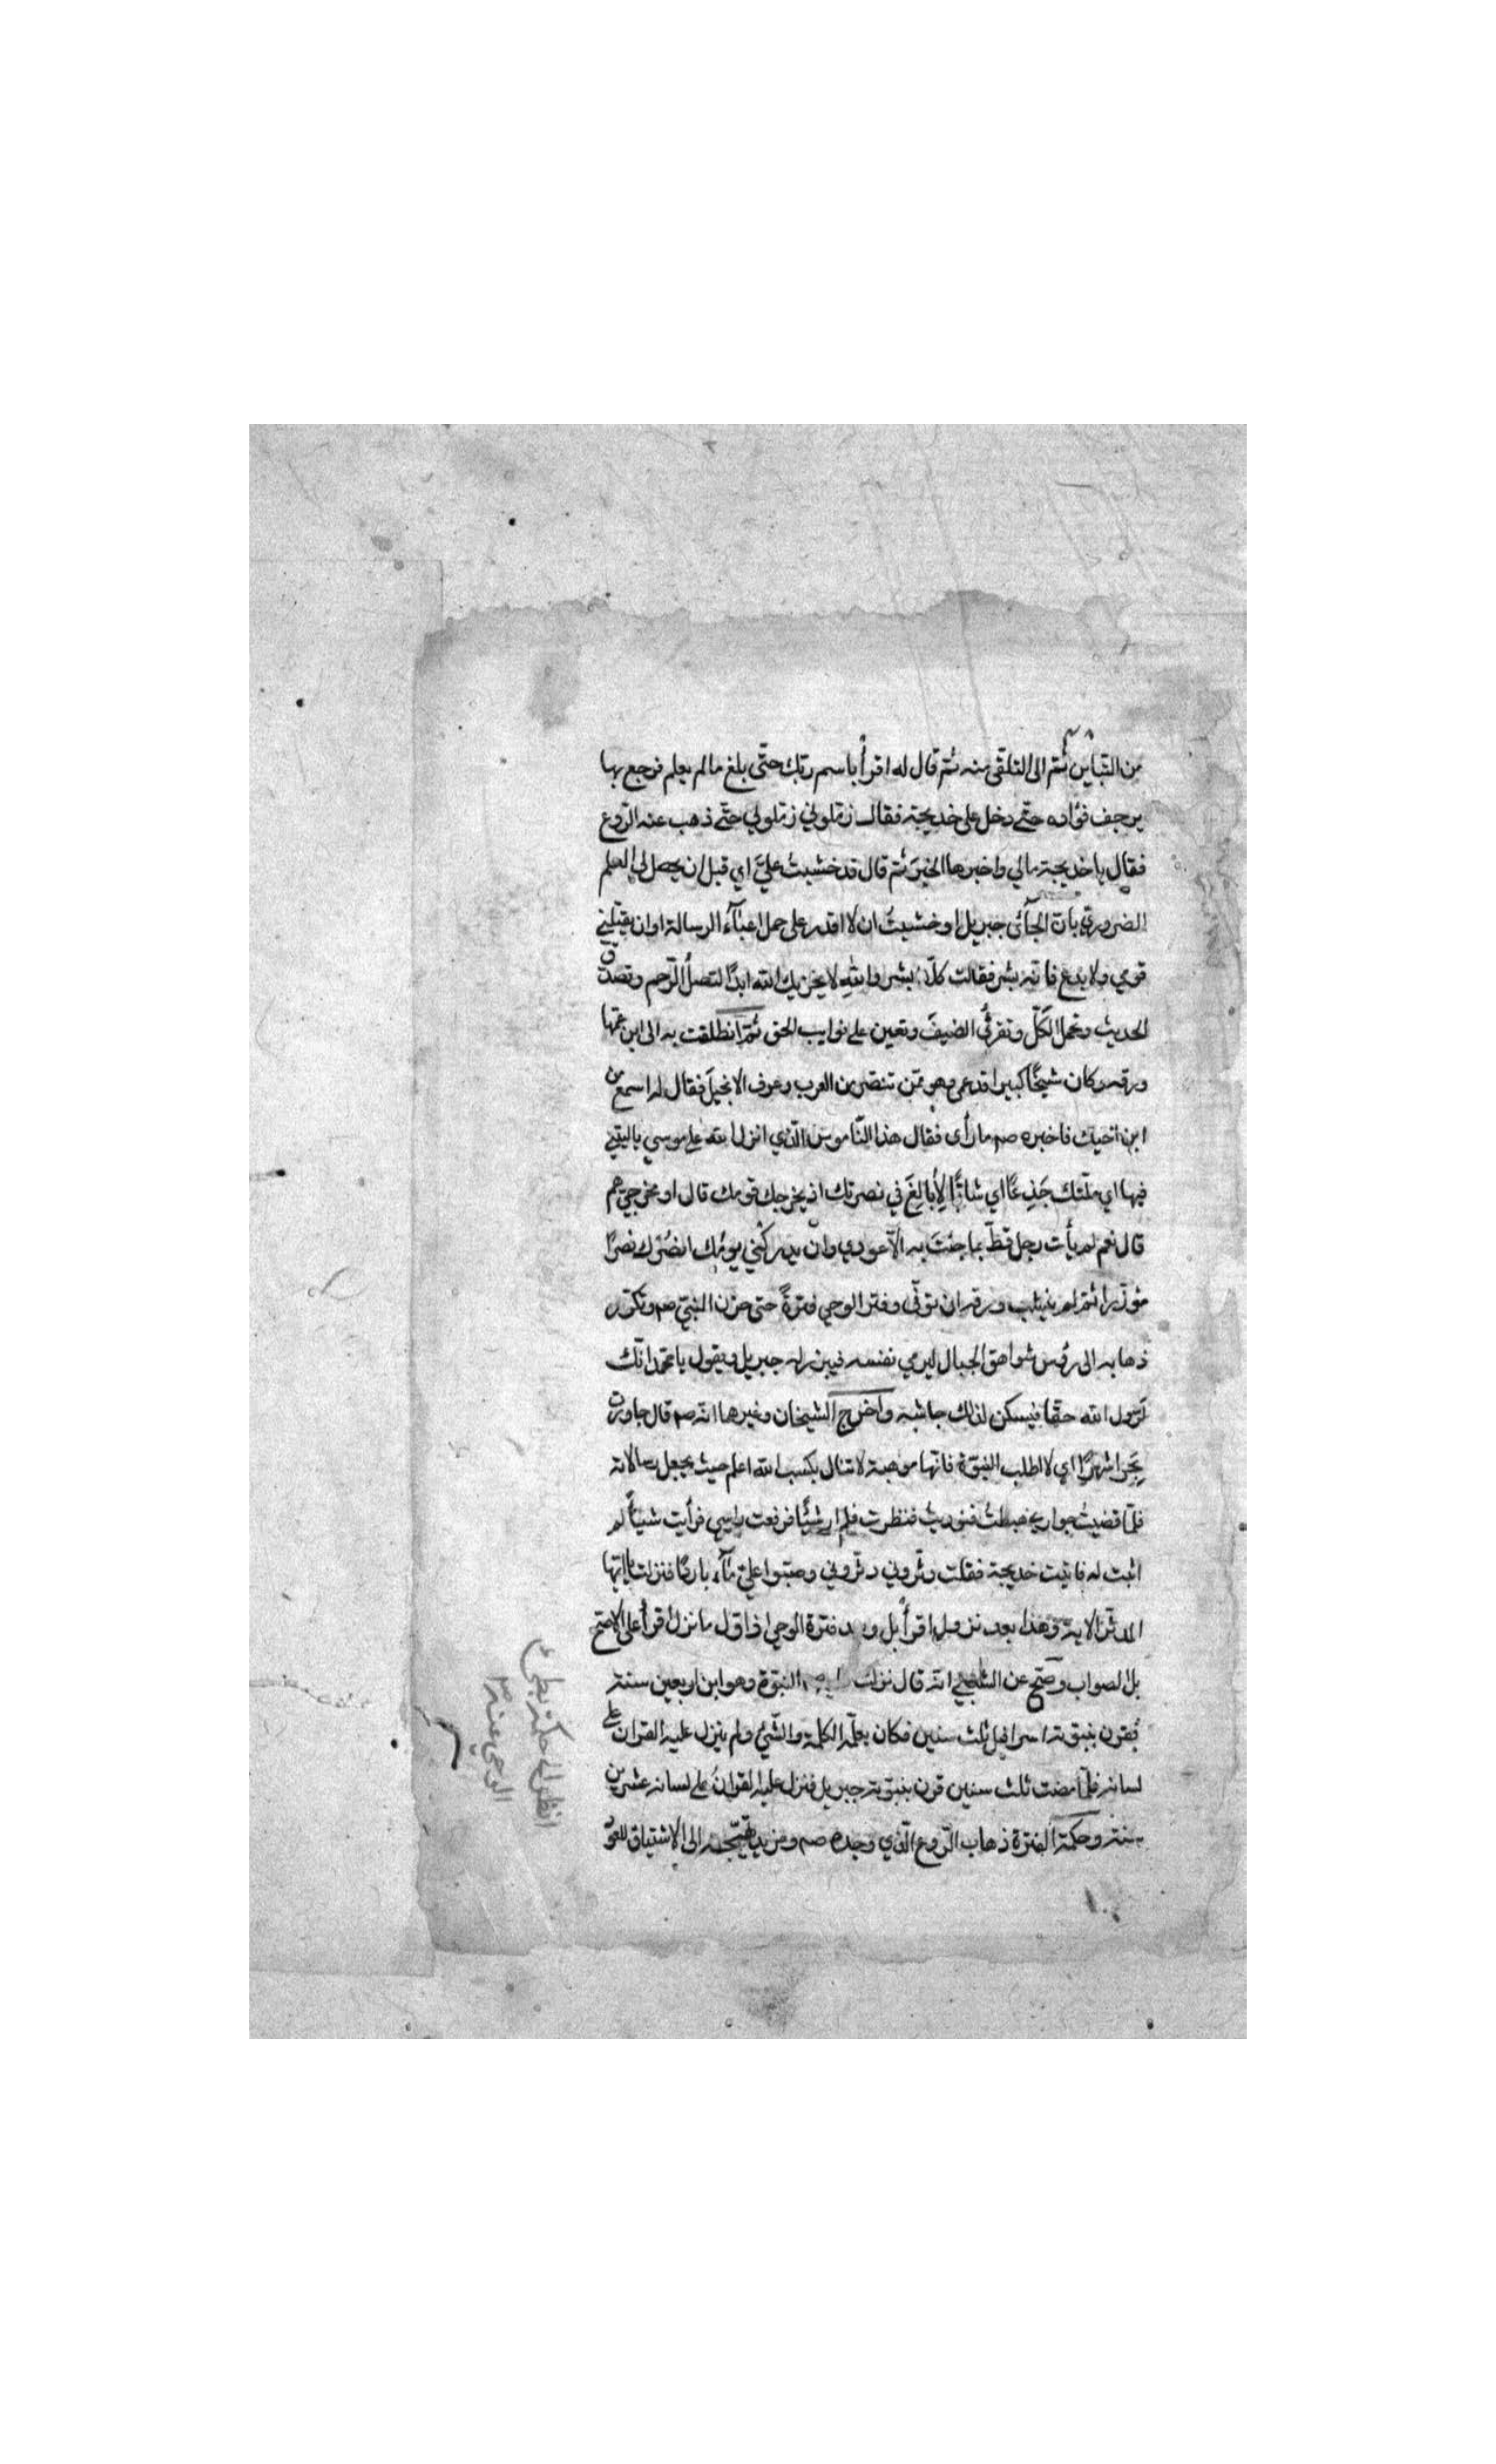 من التباين ثم الى التلقى منه ثم قال له اقرأ باسم ربك حتّى بلغ مالم يعلم فرجع بها
يرجف فؤاده حتّى دخل على خديجة فقال زمّلوني زمّلوني حتّى ذهب عنه الرّوع
فقال يا خديجة مالي واخبرها الخبر ثم قال قد خشيت عليَّ اي قبل ان يحصل لى العلم
الضروري بانّ الجآئى جبريل او خشيتُ ان لا اقدر على حمل اعبآء الرسالة او ان يقتلني
قومي ولا بدع فانّه بشر فقالت كلّا ابشر والله لا يخزيك الله ابدًا لتصلُ الرّحم وتصدق
الحديث وتحمل الكَلّ وتقرئُ الضيفَ وتعين على نوايب الحق ثمّ انطلقت به الى ابن عمّها
ورقه وكان شيخًا كبيرا قد عمى وهو ممّن تنصّر من العرب وعرف الانجيل فقال له اسمع من
ابن اخيك فاخبره صم ما رأى فقال هذا النّاموس الّذي انزل الله على موسي ياليتني
فيها اي ملّتك جَذِعًا اي شابًّا لأبالِغَ في نصرتك اذ يخرجك قومك قال او مخرجيّ هم
قال نعم لم يأت رجل قطّ بما جئتَ به الّا عودي وان يدركْني يومُك انصُرْك نصرًا
مؤزّرا ثم لم ينشب ورقه ان توفّى وفتر الوحي فترةً حتى حزن النبيّ صم وتكرّر
ذهابه الى رؤس شواهق الجبال ليرمي نفسه فيبرز له جبريل ويقول يا محمّد انّك
لَرسول الله حقّا فيسكن لذلك جاشه واخرج الشيخان وغيرهما انّه صم قال جاورت
بِحَرا شهرًا اي لا لطلب النبوّة فانّها موهبة لا تنال بكسب الله اعلم حيث يجعل رسالاته
فلمّا قضيتُ جواري هبطتُ فنوديتُ فنظرت فلم ار شيئًا فرفعت راسي فرأيت شيئًا لم
اثبت له فاتيت خديجة فقلت دثّروني دثّروني وصبّوا عليّ مآء باردًا فنزلت يا ايّها
المدثّر الاية وهذا بعد نزول اقرأ بل وبعد فترة الوحي اذ اوّل ما نزل اقرأ على الاصحّ
بل الصواب وصحّ عن الشعبي انّه قال نزلت النبوّة وهو ابن اربعين سنة
فقرن بنبوّته اسرافيل ثلث سنين فكان يعلّمه الكلمة والشّيئ ولم ينزل عليه القران على
لسانه فلمّا مضت ثلث سنين قرن بنبوّته جبريل فنزل عليه القرانُ على لسانه عشرين
سنة وحكمة الفترة ذهاب الرّوع الّذي وجده صم ومزيد تهيّجه الى الاشتياق للعَوْ
انظر الى حكمة بطئ
الوحي عنه